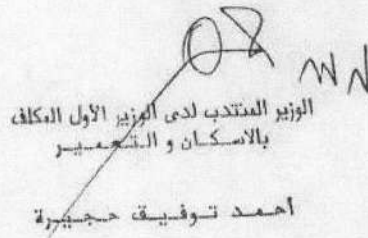 الوزير المنتدب لدى الوزير الأول المكلف
بالاسكان و التعمير
احمد توفيق حجيرة